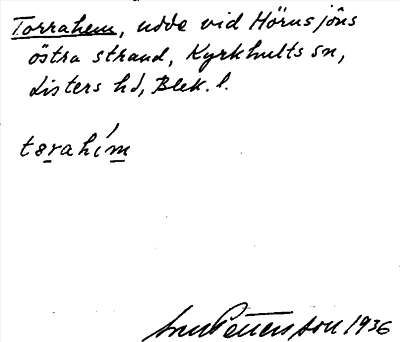 Torrahem, udde vid Hörnsjöns
östra strand, Kyrkhults sn,
Listers hd, Blek. l.
torahím
Sven Pettersson 1936